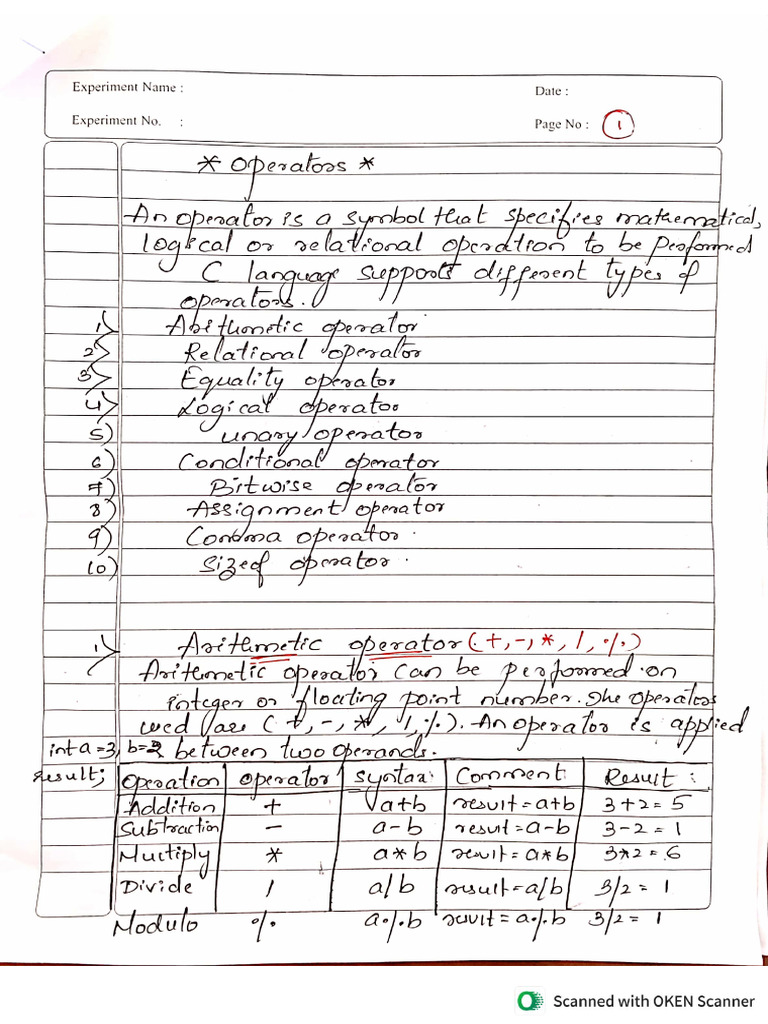 Experiment Name :
Date :
Experiment No. :
Page No : 1
* Operators *
An operator is a symbol that specifies mathematical,
logical or relational operation to be performed
C language supports different types of
operators.
1) Arithmetic operator
2) Relational operator
3) Equality operator
4) Logical operator
5) unary operator
6) Conditional operator
7) Bitwise operator
8) Assignment operator
9) Comma operator.
10) Sizeof operator.
1) Arithmetic operator (+, -, *, /, %)
Arithmetic operator can be performed on
integer or floating point number. The operators
used are (+, -, *, /, %). An operator is applied
int a = 3, b=2 between two operands.
result;
Operation operator syntax: Comment Result :
Addition + a+b result = a+b 3+2 = 5
Subtraction - a-b result = a-b 3-2 = 1
Multiply * a*b result = a*b 3*2 = 6
Divide / a/b result = a/b 3/2 = 1
Modulo % a%b result = a%b 3/2 = 1
Scanned with OKEN Scanner